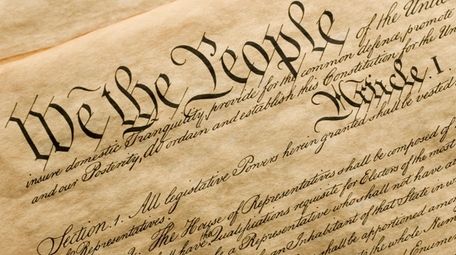 We the People of the Unit
insure domestic Tranquility, provide for the common defence, promote
and our Posterity, do ordain and establish this Constitution for the Un
Article. I.
Section. 1. All legislative Powers herein granted shall be vested
of Representatives.
The House of Representatives shall be composed of
shall have Qualifications requisite for Electors of the most
be a Representative who shall not have a
an Inhabitant of that State in w
shall be apportioned amo
the whole Num
Enumer